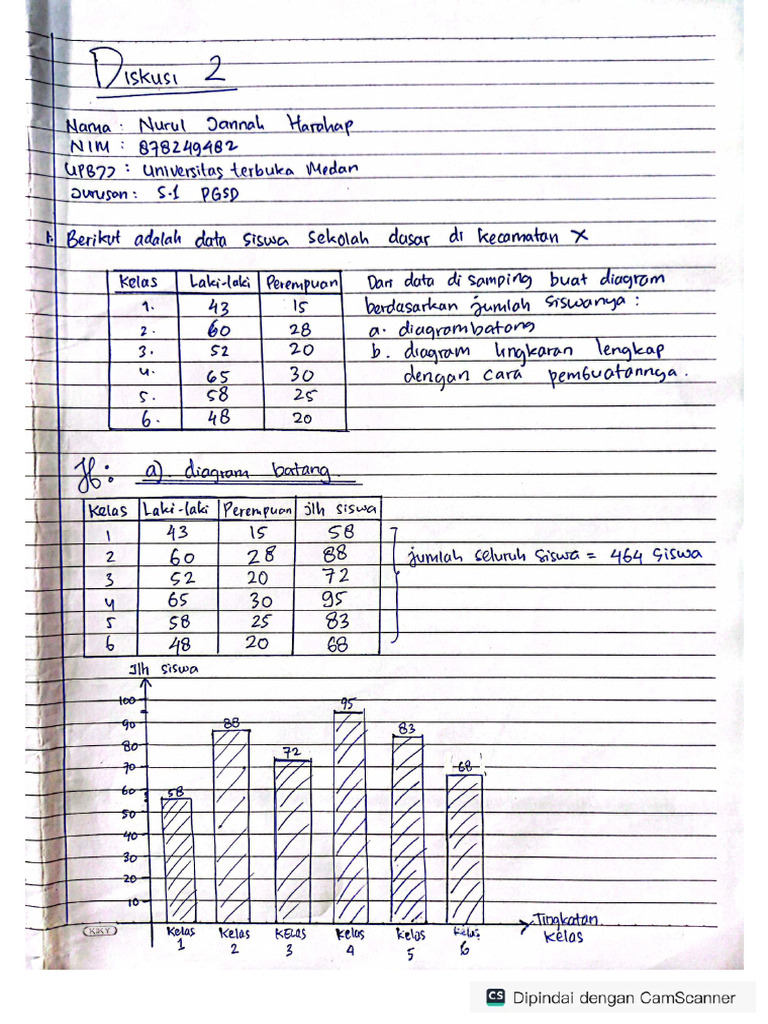 Diskusi 2
Nama : Nurul Jannah Harahap
NIM : 878249482
UPBJJ : Universitas terbuka Medan
Jurusan : S-1 PGSD
1. Berikut adalah data siswa sekolah dasar di kecamatan X
Kelas Laki-laki Perempuan
1. 43 15
2. 60 28
3. 52 20
4. 65 30
5. 58 25
6. 48 20
Dari data di samping buat diagram
berdasarkan jumlah siswanya :
a. diagram batang
b. diagram lingkaran lengkap
dengan cara pembuatannya.
Jb: a). diagram batang
Kelas Laki-laki Perempuan Jlh siswa
1 43 15 58
2 60 28 88
3 52 20 72
4 65 30 95
5 58 25 83
6 48 20 68
jumlah seluruh siswa = 464 siswa
Jlh siswa
100
90
80
70
60
50
40
30
20
10
58
88
72
95
83
68
Kelas 1
Kelas 2
KELAS 3
Kelas 4
Kelas 5
Kelas 6
Tingkatan
Kelas
KIKY
CS Dipindai dengan CamScanner